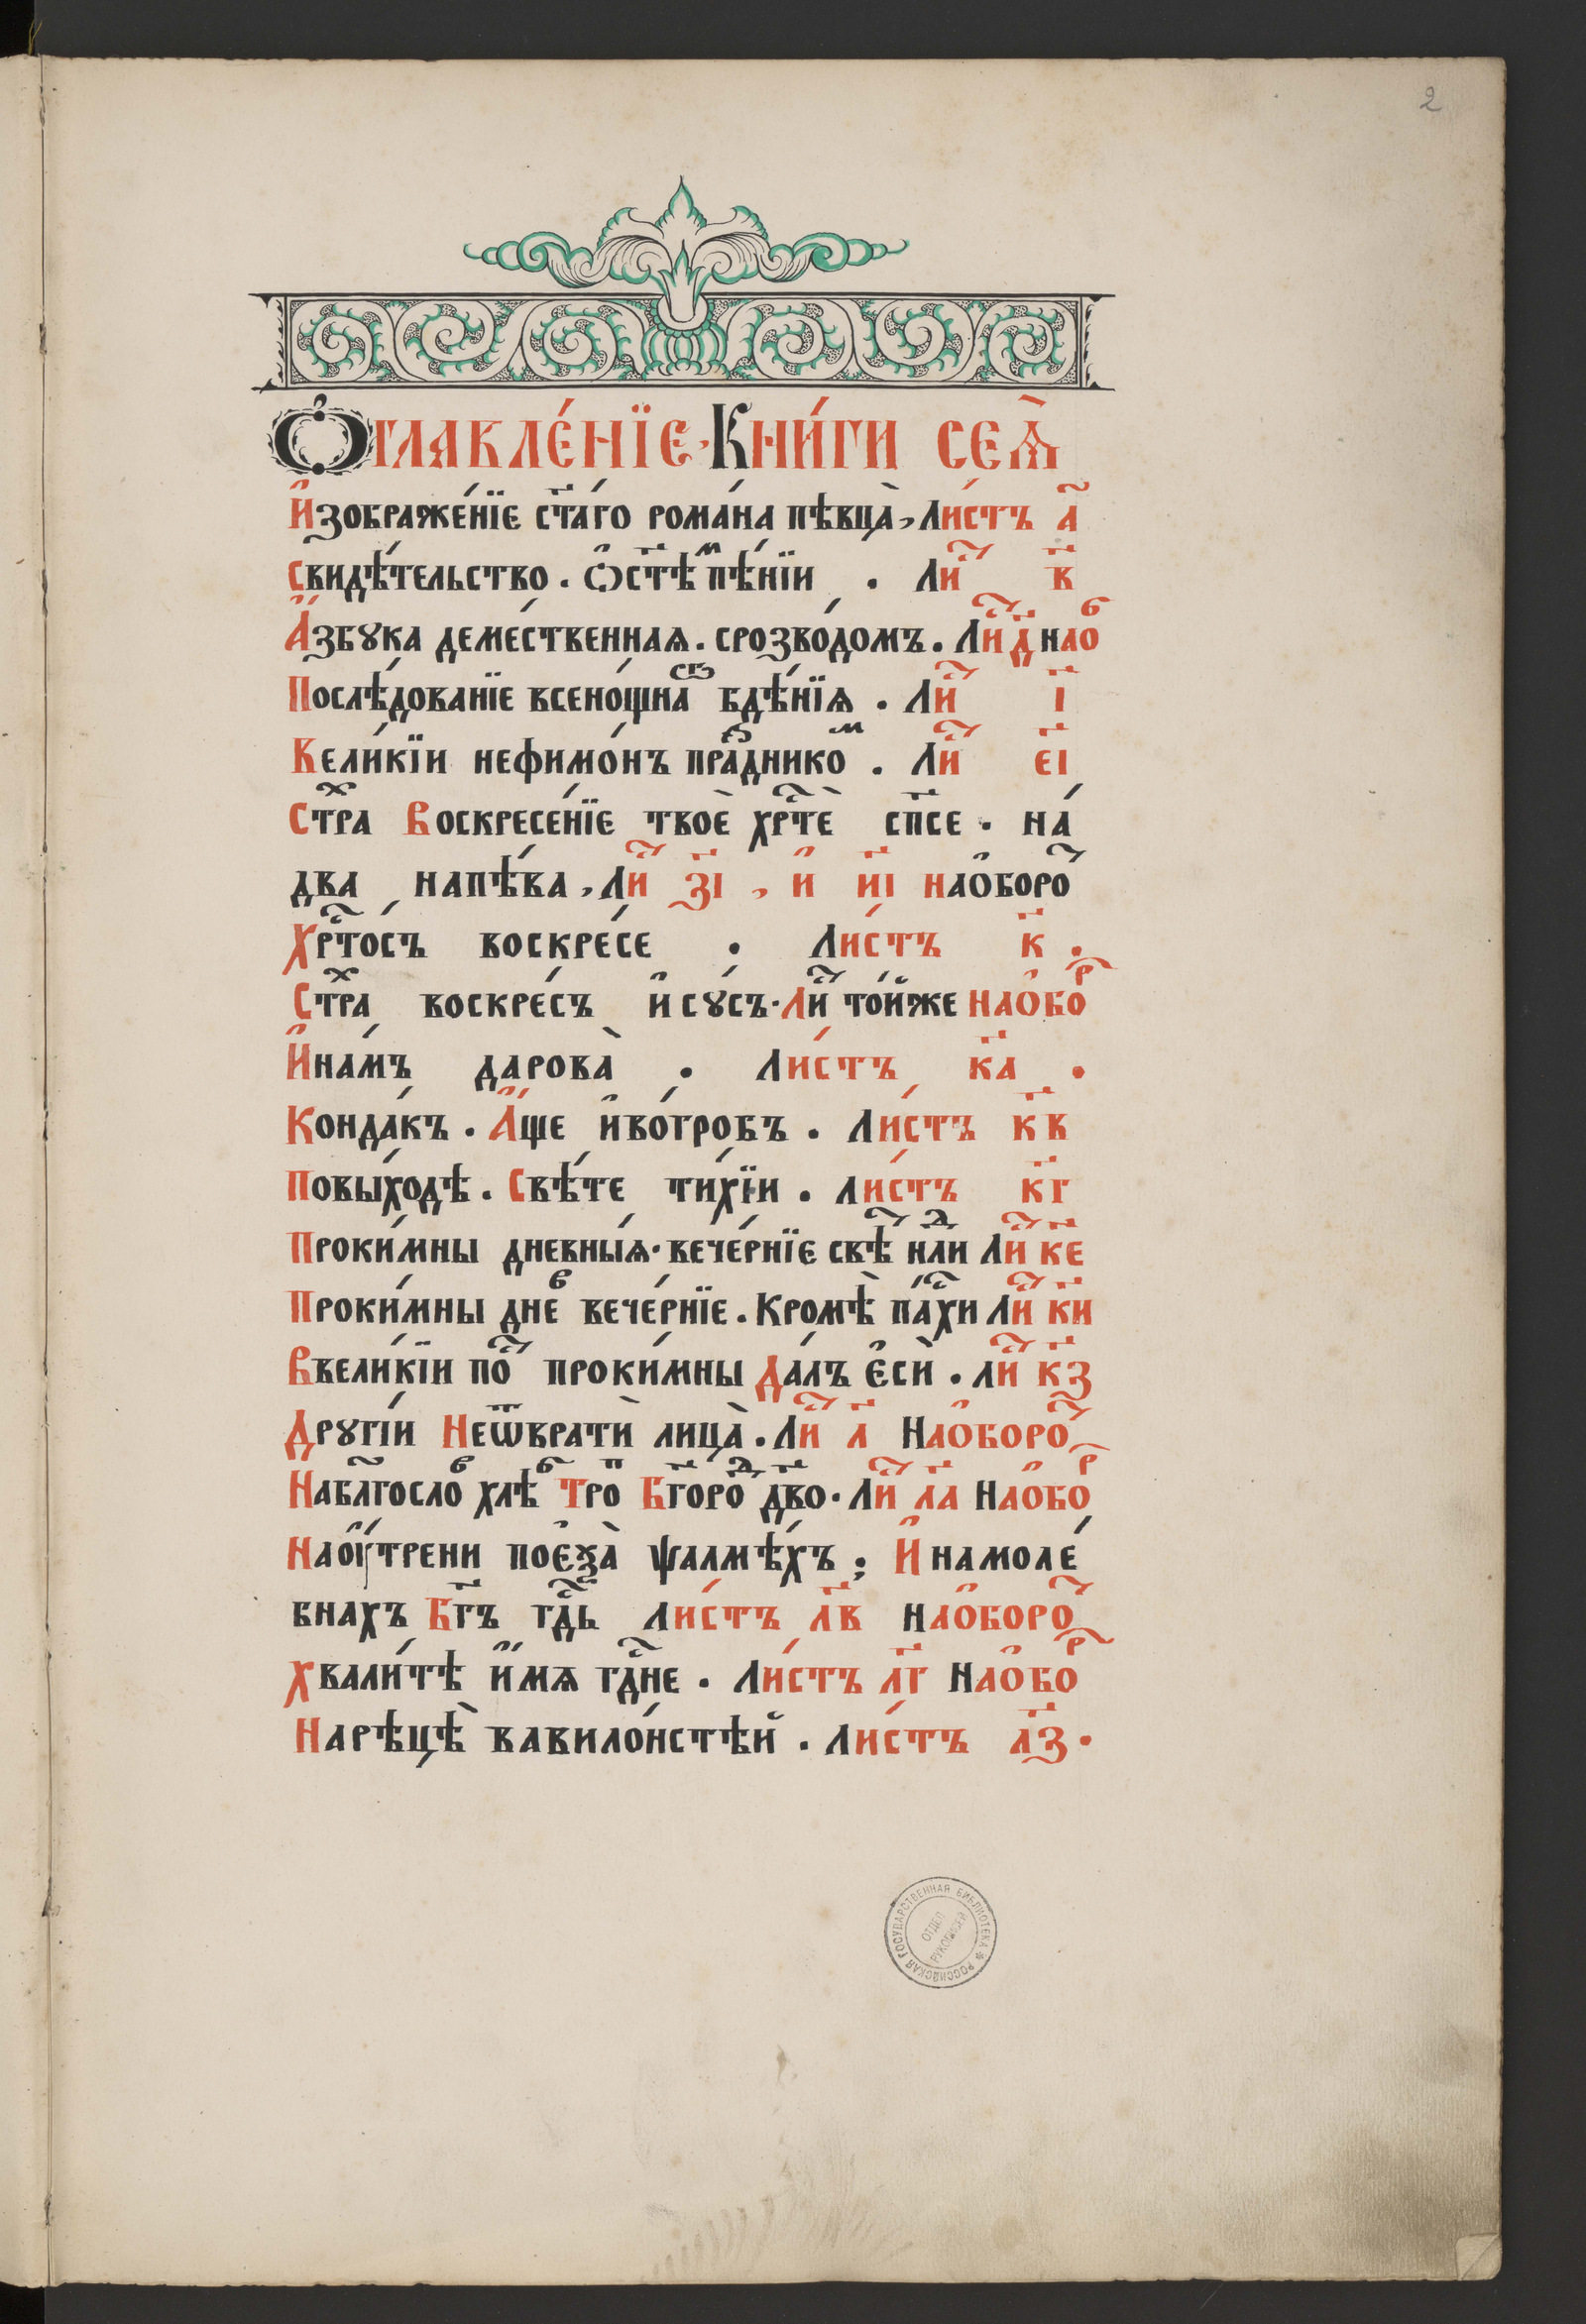 2
Ѻ҆главле́нїе. Кни́ги сеѧ̀
И҆зображе́нїе ст҃а́го рома́на пѣвца̀, Ли́стъ а҃
Свидѣ́тельство. Ѽст҃ѣⷨ пѣ́нїи . Лиⷭ҇ в҃
А҆́збꙋка деме́ственнаѧ. срозво́домъ. Лиⷭ҇ д҃ наоⷠ
Послѣ́дованїе всено́щнаⷢ҇ѡ бдѣ́нїѧ . Лиⷭ҇ і҃
Вели́кїи нефимо́нъ праⷥ҇дникоⷨ . Лиⷭ҇ е҃і
Стⷯра Воскресе́нїе твоѐ хрⷭ҇тѐ сп҃се . на́
два напѣ́ва, Лиⷭ҇ з҃і , и҆ и҃і нао҆бороⷮ
Хрⷭ҇то́съ воскре́се . Ли́стъ к҃ .
Стⷯра воскре́съ и҆сꙋ́съ. Лиⷭ҇ то́йже нао҆боⷬ
И҆на́мъ дарова̀ . Ли́стъ к҃а .
Конда́къ . А҆́ще и҆во́гробъ . Ли́стъ к҃в
Повы́ходѣ . Свѣ́те ти́хїи . Ли́стъ к҃г
Проки́мны дневны́ѧ. вече́рнїе свѣⷮ нⷣли Лиⷭ҇ к҃е
Проки́мны днеⷡ вече́рнїе . Кромѣ̀ па́ⷭ҇хи Лиⷭ҇ к҃и
Ввели́кїи поⷭ҇ проки́мны Да́лъ є҆сѝ . лиⷭ҇ к҃з
Дрꙋгі́и Неѿвратѝ лица̀ . Лиⷭ҇ л҃ Нао҆бороⷮ
Набл҃гослоⷡ хлѣⷠ Троⷫ Бг҃ороⷣ дв҃о. Лиⷭ҇ л҃а Нао҆боⷬ
Наоу҆́трени пое҆ѯа̀ ѱалмѣ́хъ ; И҆ намоле́
бнахъ Бг҃ъ гдⷭ҇ь Ли́стъ л҃в нао҆бороⷮ
Хвали́тѣ и҆́мѧ гдⷭ҇не . Ли́стъ л҃г Нао҆боⷬ
Нарѣцѣ̀ вавило́нстѣй . Ли́стъ л҃з .
РОССИЙСКАЯ ГОСУДАРСТВЕННАЯ БИБЛИОТЕКА
ОТДЕЛ
РУКОПИСЕЙ